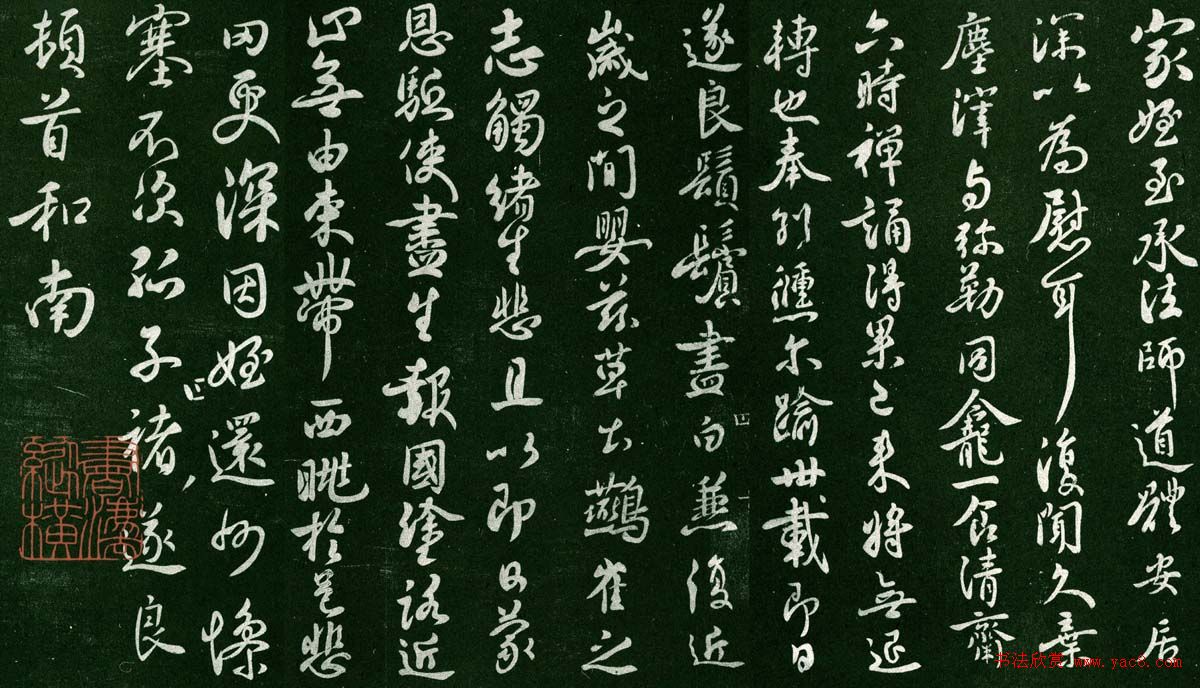 家姪至承法師道體安居
深以為慰耳復聞久棄
塵滓与弥勒同龕一食清齋
六時禅誦得果已來將無退
轉也奉別倏尔踰卅載即日
遂良鬚鬢盡白兼復近
歲之間嬰茲草土鷰雀之
志觸緒生悲且以即日蒙
恩驅使盡生報國塗路近
止無由束帶西眺於邑悲
罔更深因姪還州慘
塞不次孤子褚遂良
頓首和南
書法縱橫
书法欣赏 www.yac8.com